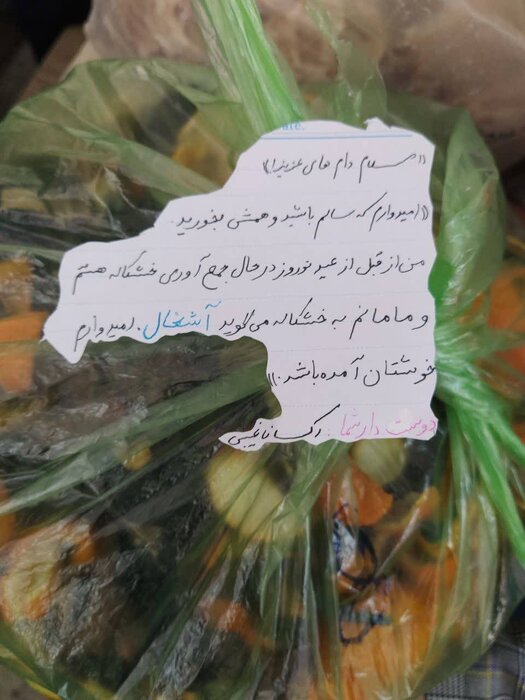 ate.
«سلام دام های عزیز!»
«امیدوارم که سالم باشید و همشی بخورید.
من از قبل از عید نوروز در حال جمع آوری خشکاله هستم
و مامانم به خشکاله می گوید آشغال. امیدوارم
خوشتان آمده باشد.»
دوست دار شما: رکسانا